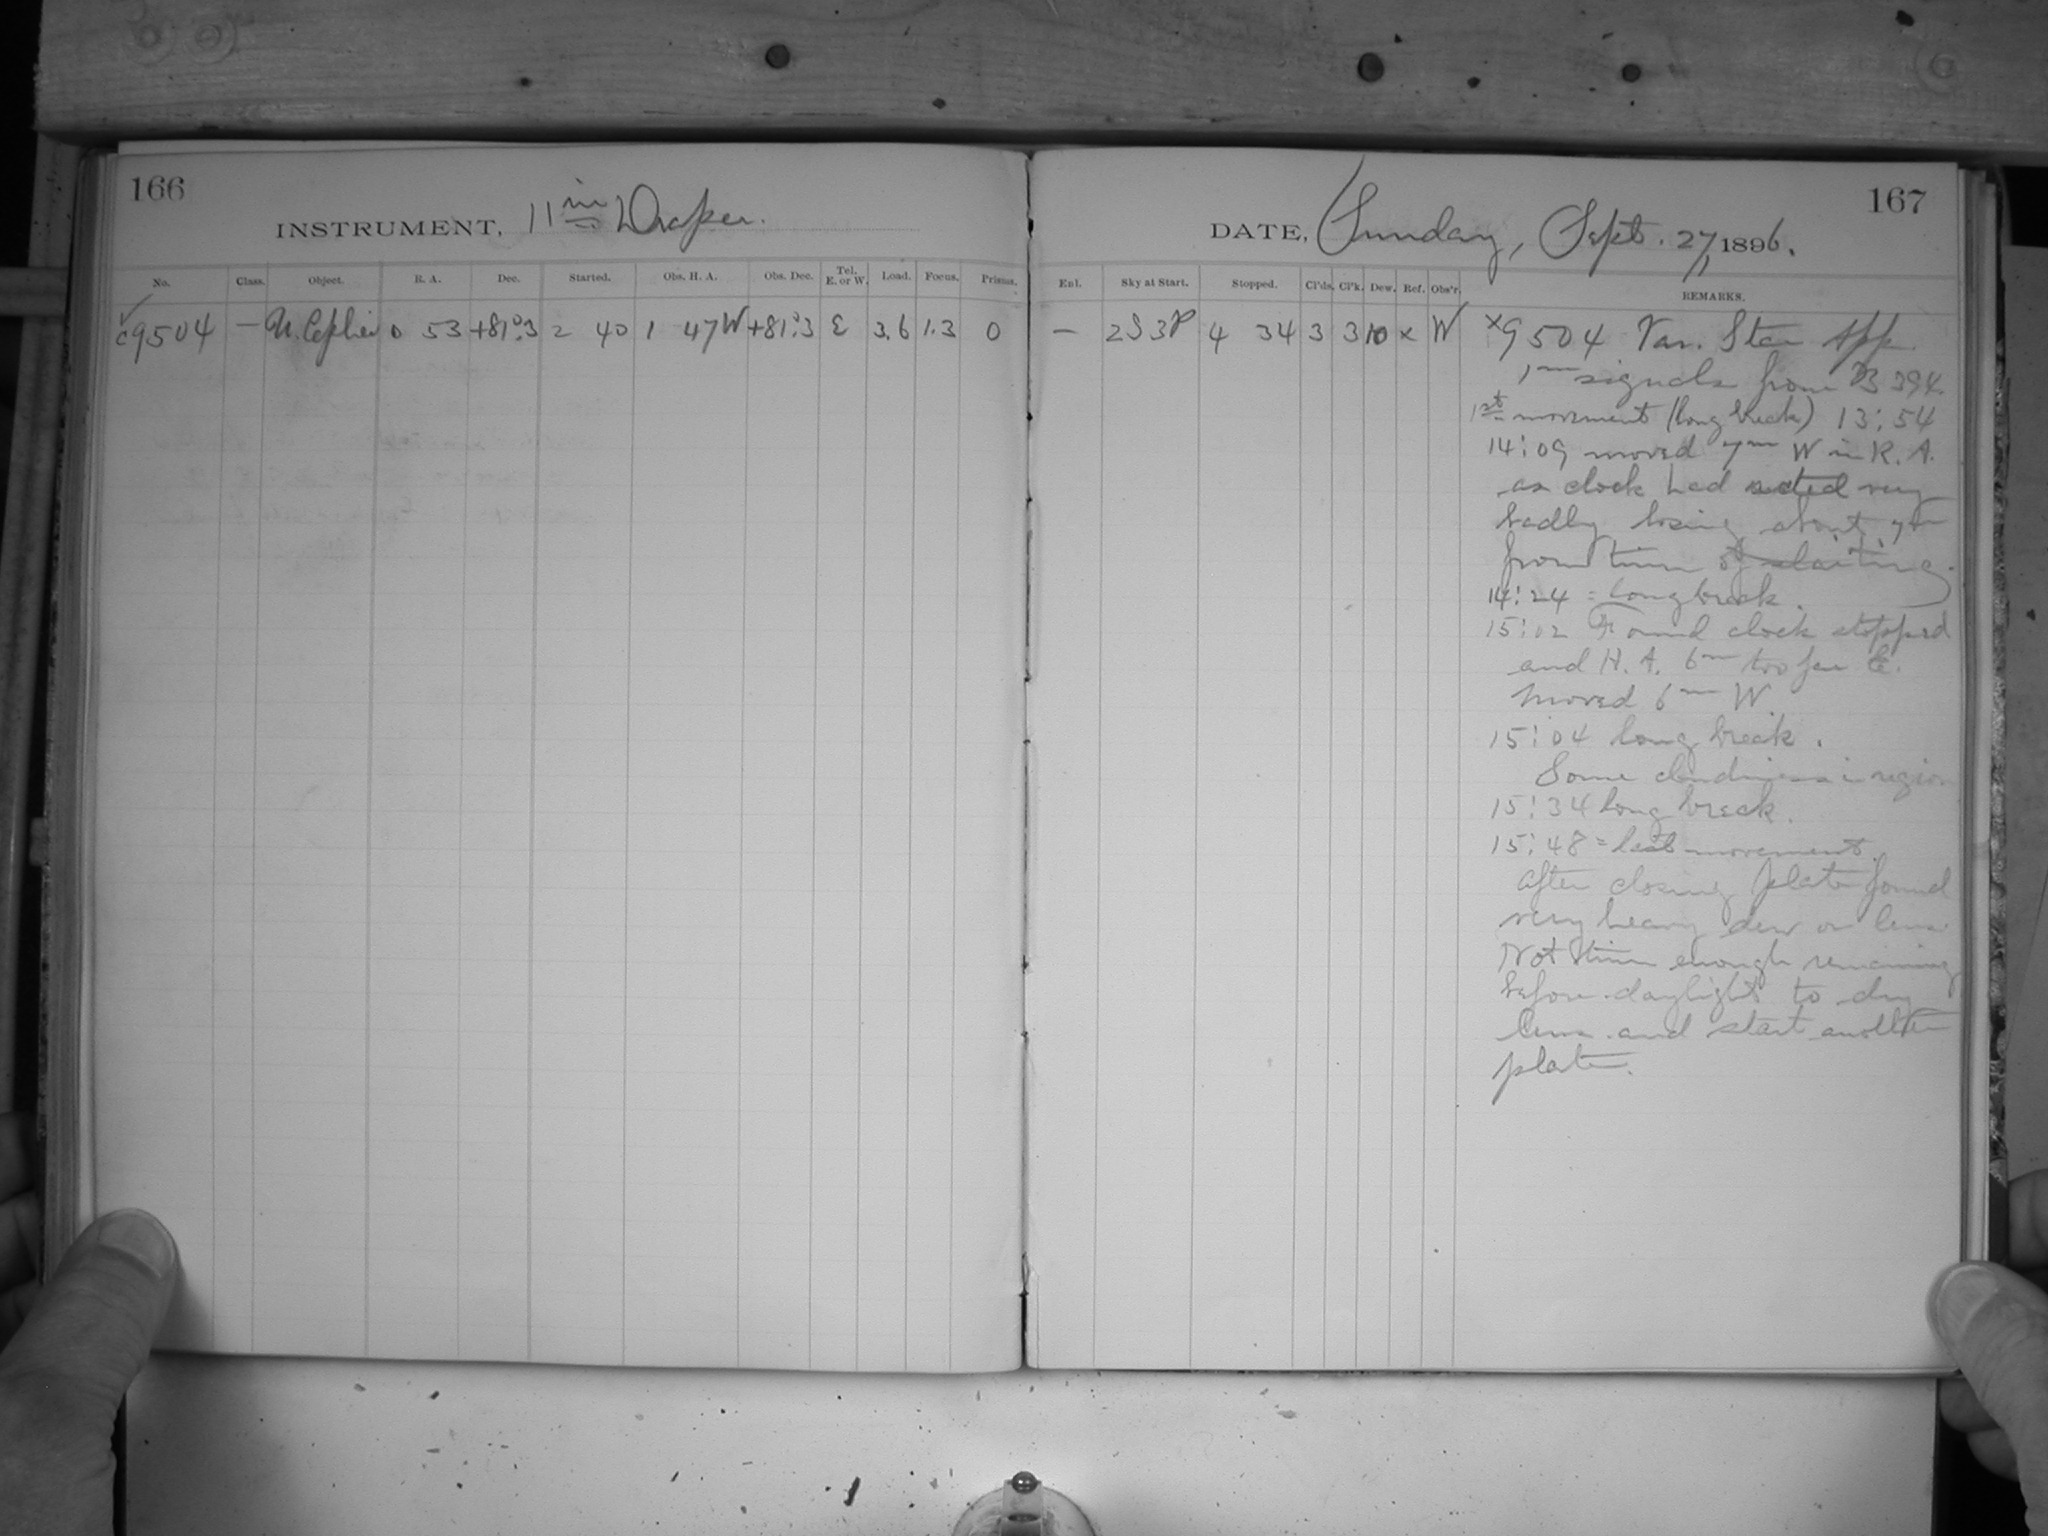 166
INSTRUMENT, 11 in Draper.
No. Class. Object. R. A. Dec. Started. Obs. H. A. Obs. Dec. Tel. E. or W. Load. Focus. Prisms.
c9504 — U. Cephei 0 53 +81°.3 2 40 1 47 W +81°.3 E 3.6 1.3 0
167
DATE, Sunday, Sept. 27, 1896.
Enl. Sky at Start. Stopped. Cl'ds. Cl'k. Dew. Ref. Obs'r. REMARKS.
— 2S3P 4 34 3 3 10 x W x9504 Var. Star App
1m signals from B 394.
1st movement (long break) 13:54
14:09 moved 7m W in R. A.
as clock had acted very
badly losing about 7m
from time of starting.
14:24 = long break.
15:02 Found clock stopped
and H. A. 6m too far E.
Moved 6m W
15:04 long break.
Some cloudiness in region
15:34 long break.
15:48 = last movement.
After closing plate found
very heavy dew on lens
Not time enough remaining
before daylight to dry
lens and start another
plate.